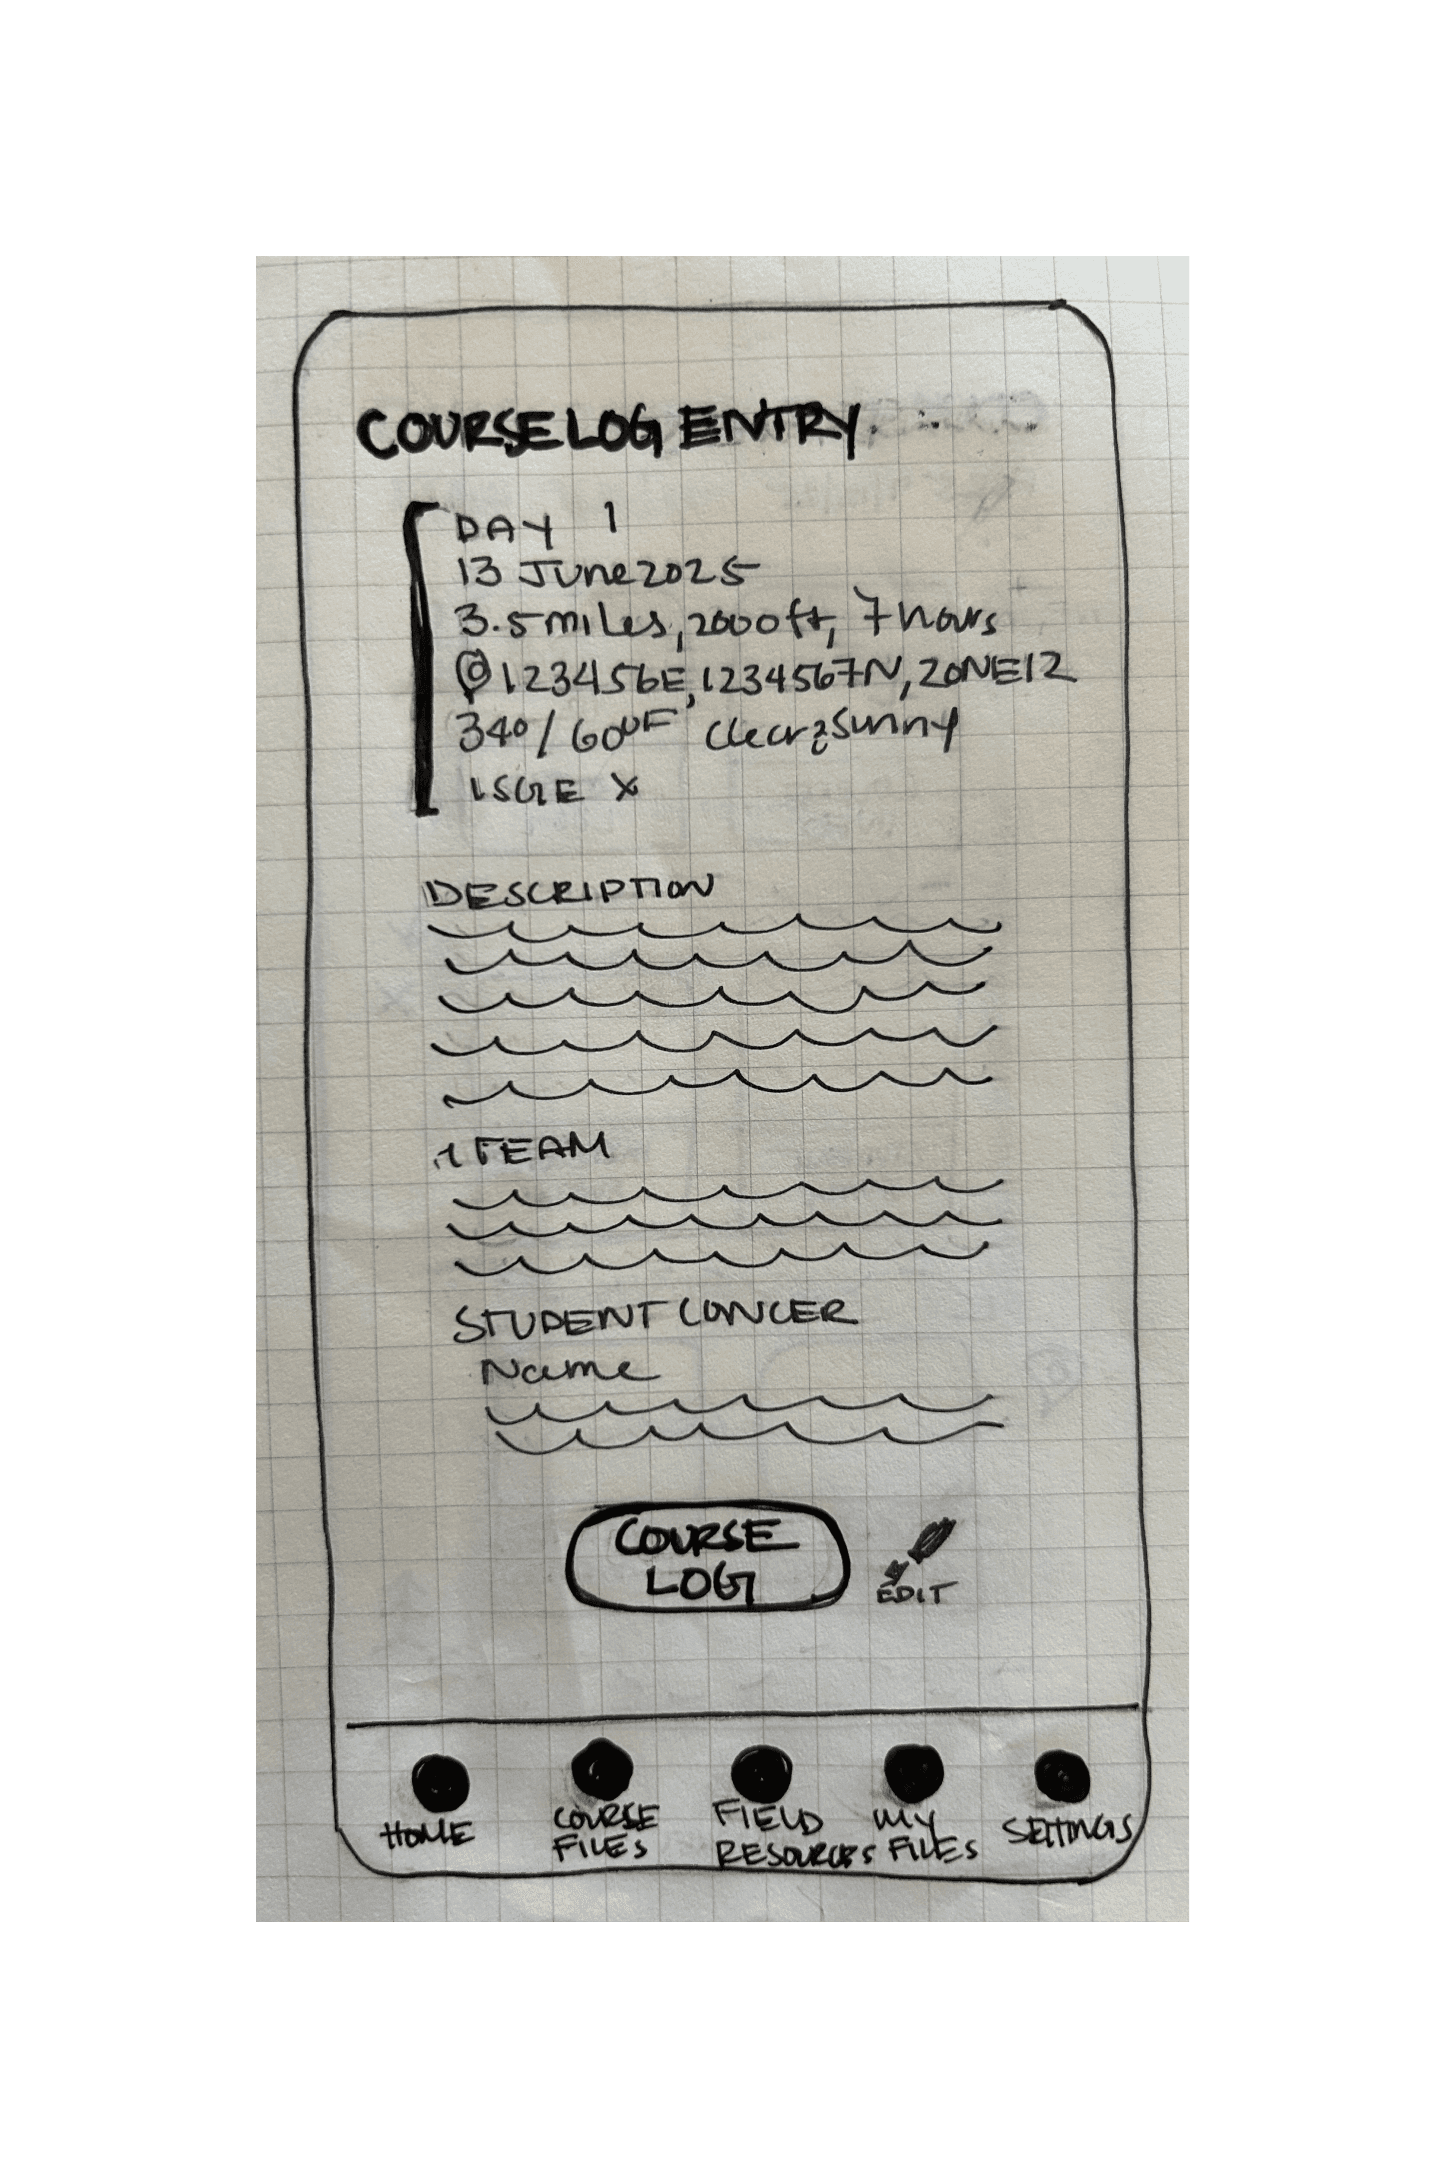 COURSE LOG ENTRY
DAY 1
13 June 2025
3.5 miles, 2000ft, 7 hours
123456E, 1234567N, ZONE 12
34°/60°F clear & sunny
ISGE X
DESCRIPTION
TEAM
STUDENT CONCER
Name
COURSE
LOG
EDIT
HOME
COURSE
FILES
FIELD
RESOURCES
MY
FILES
SETTINGS